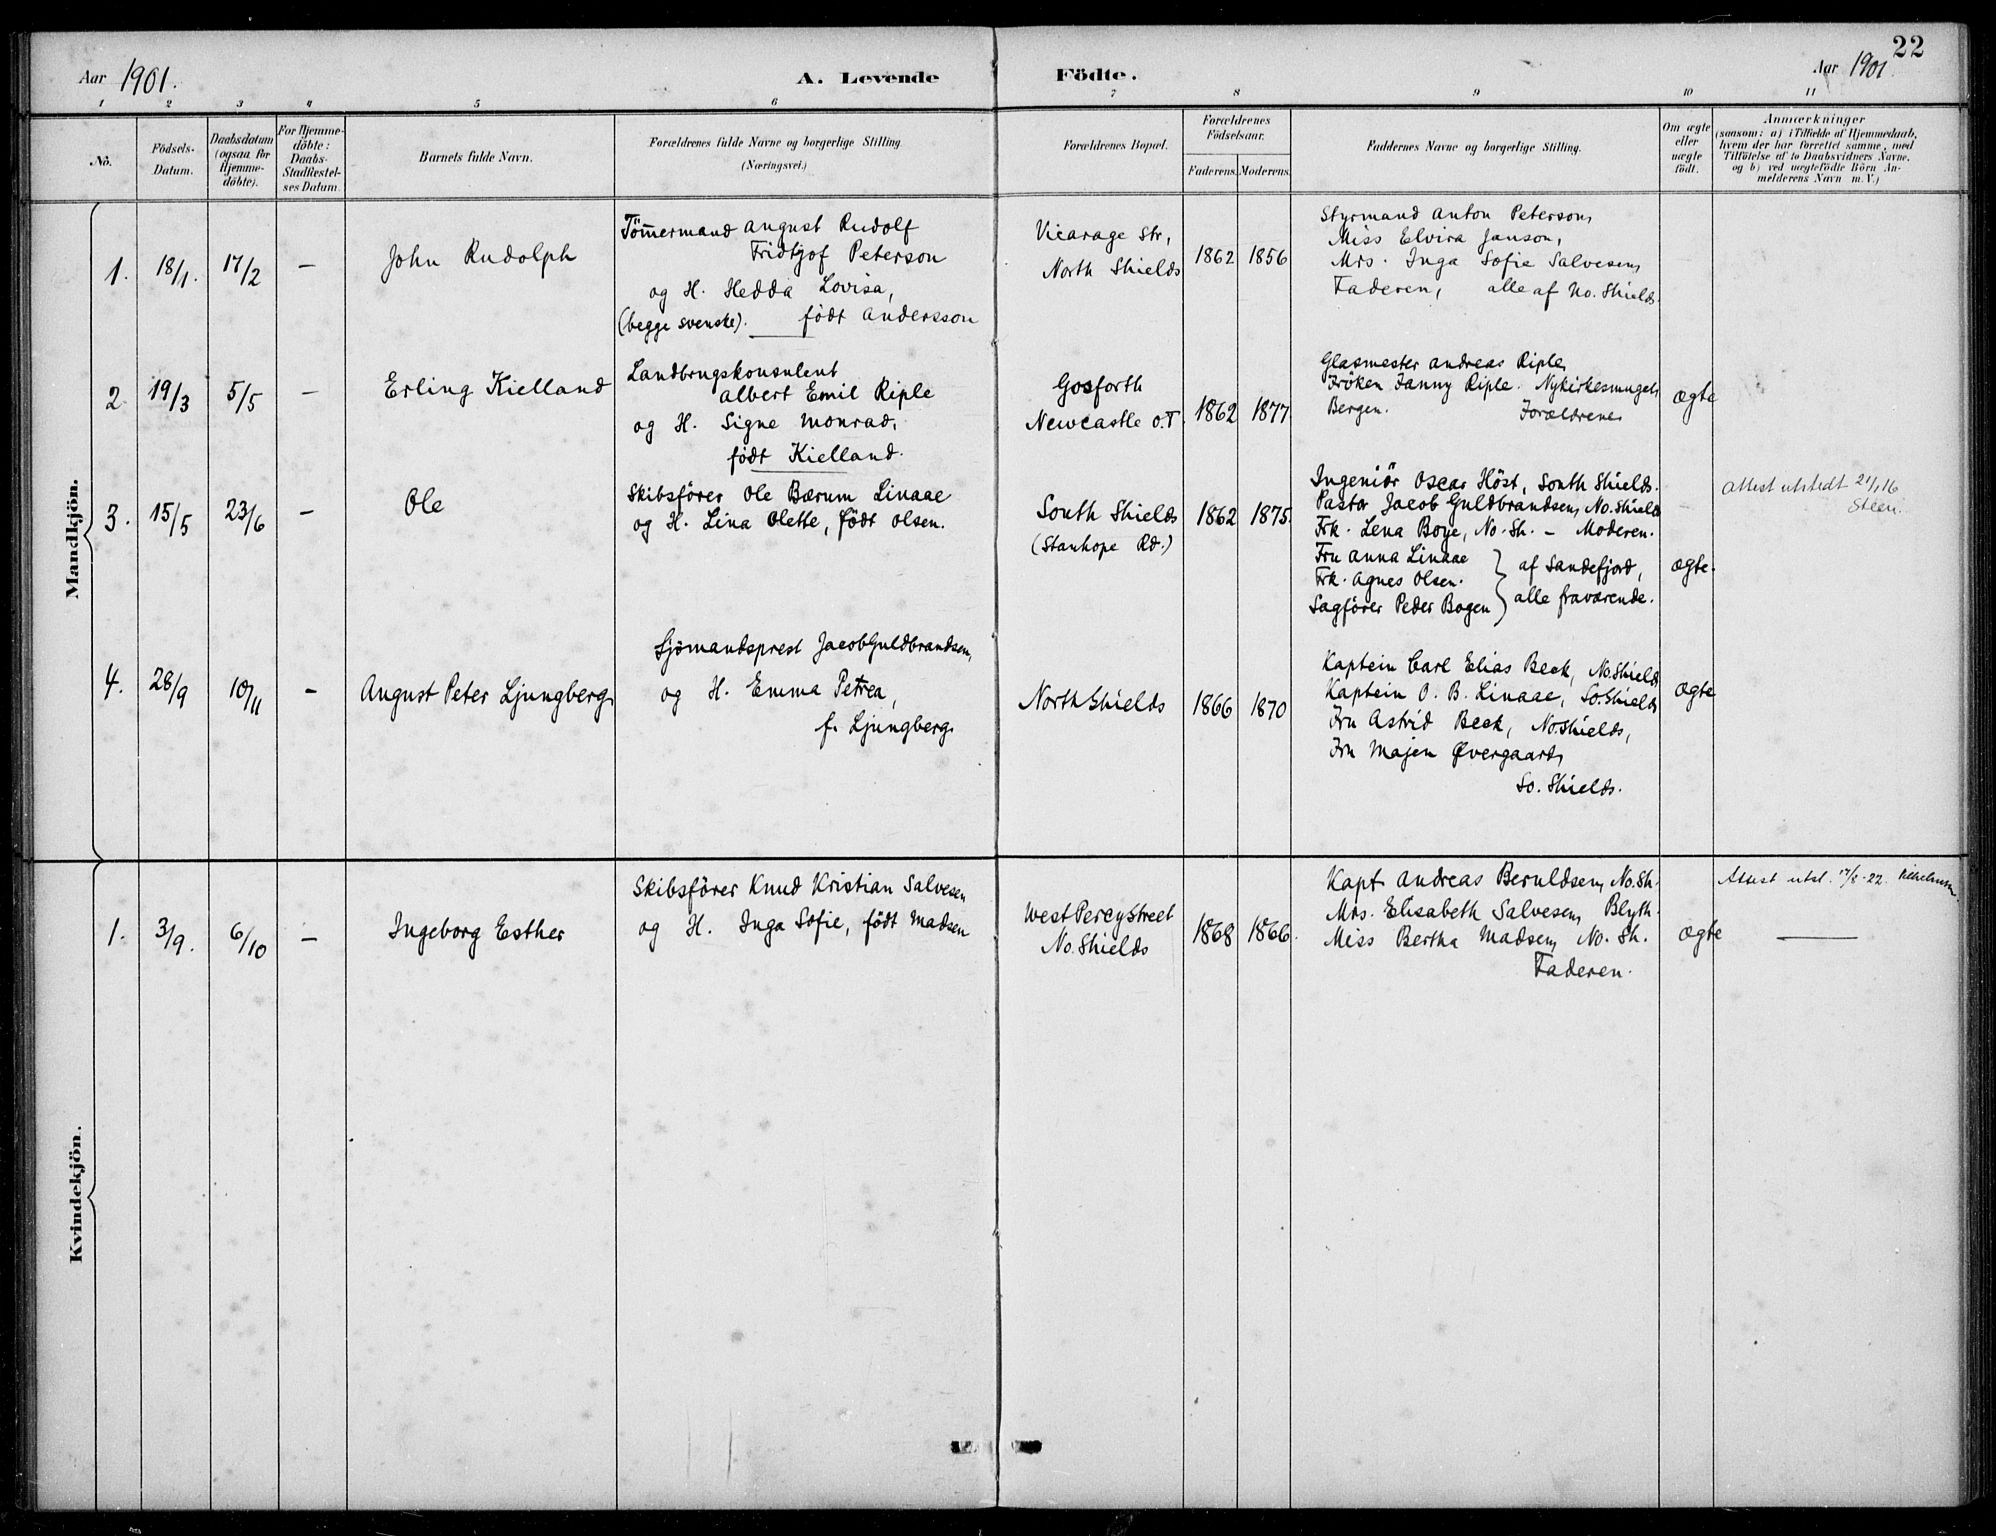 22
Aar 1901.
A. Levende Födte.
Aar 1901.
1 2 3 4 5 6 7 8 9 10 11
No.
Födsels-
Datum.
Daabsdatum
(ogsaa for
Hjemme-
döbte).
For Hjemme-
döbte:
Daabs-
Stadfæstel-
ses Datum.
Barnets fulde Navn.
Forældrenes fulde Navne og borgerlige Stilling
(Næringsvei.)
Forældrenes Bopæl.
Forældrenes
Födselsaar.
Faderens. Moderens.
Faddernes Navne og borgerlige Stilling.
Om ægte
eller
uægte
födt.
Anmærkninger
(saasom: a) i Tilfælde af Hjemmedaab,
hvem der har forrettet samme, med
Tilföielse af to Daabsvidners Navne.
og b) ved uægtefödte Börn An-
melderens Navn m. V.)
Mandkjön.
1. 18/1. 17/2 —
John Rudolph
Tömmermand August Rudolf
Fridtjof Peterson
og H. Hedda Lovisa,
(begge svenske). födt Andersson
Vicarage Str,
North Shields
1862 1856
Styrmand Anton Peterson,
Miss Elvira Janson,
Mrs. Inga Sofie Salvesen,
Faderen, alle af No. Shields.
2. 19/3 5/5 —
Erling Kielland
Landbrugskonsulent
Albert Emil Riple
og H. Signe Monrad,
födt Kielland.
Gosforth
Newcastle o.T.
1862 1877
Glasmester Andreas Riple,
Fröken Fanny Riple. Nykirkesmuget,
Bergen. Forældrene
ægte
3. 15/5 23/6 —
Ole
Skibsförer Ole Bærum Linaae
og H. Lina Olette, födt Olsen.
South Shields
(Stanhope Rd.)
1862 1875.
Ingeniör Oscar Höst, South Shields.
Pastor Jacob Guldbrandsen, No. Shields
Frk. Lena Boye, No. Sh. – Moderen.
Fru Anna Linaae
Frk. Agnes Olsen.
Sagförer Peder Bogen
af Sandefjord,
alle fraværende.
ægte.
Attest utstedt 21/1 16
Steen.
4. 28/9 10/11 —
August Peter Ljungberg
Sjömandsprest Jacob Guldbrandsen,
og H. Emma Petrea,
f. Ljungberg.
North Shields
1866 1870
Kaptein Carl Elias Beck, No. Shields
Kaptein O. B. Linaae, So. Shields
Fru Astrid Beck, No. Shields,
Fru Majen Øvergaard,
So. Shields.
ægte
Kvindekjön.
1. 3/9. 6/10 —
Ingeborg Esther
Skibsförer Knud Kristian Salvesen
og H. Inga Sofie, födt Madsen
West Percy Street
No. Shields
1868 1866.
Kapt. Andreas Beruldsen, No. Sh.
Mrs. Elisabeth Salvesen, Blyth.
Miss Bertha Madsen, No. Sh.
Faderen.
ægte
Attest utst. 17/8-22.
—